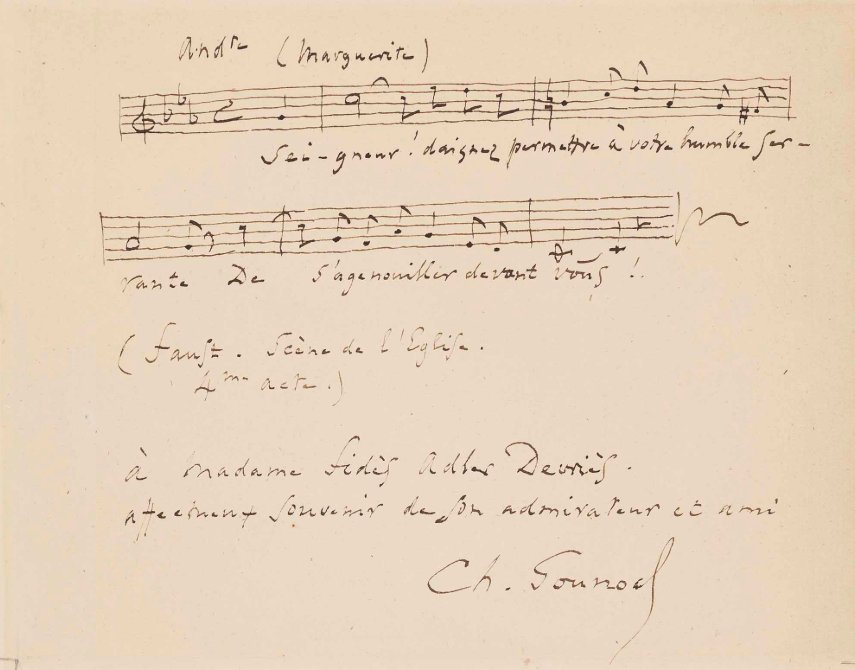 Andte (Marguerite)
Sei-gneur! daignez permettre à votre humble ser-
vante De s'agenouiller devant vous!.
(Faust. Scène de l'Eglise.
4me acte.)
à Madame Fidès Adler Devriès.
affectueux souvenir de son admirateur et ami
Ch. Gounod